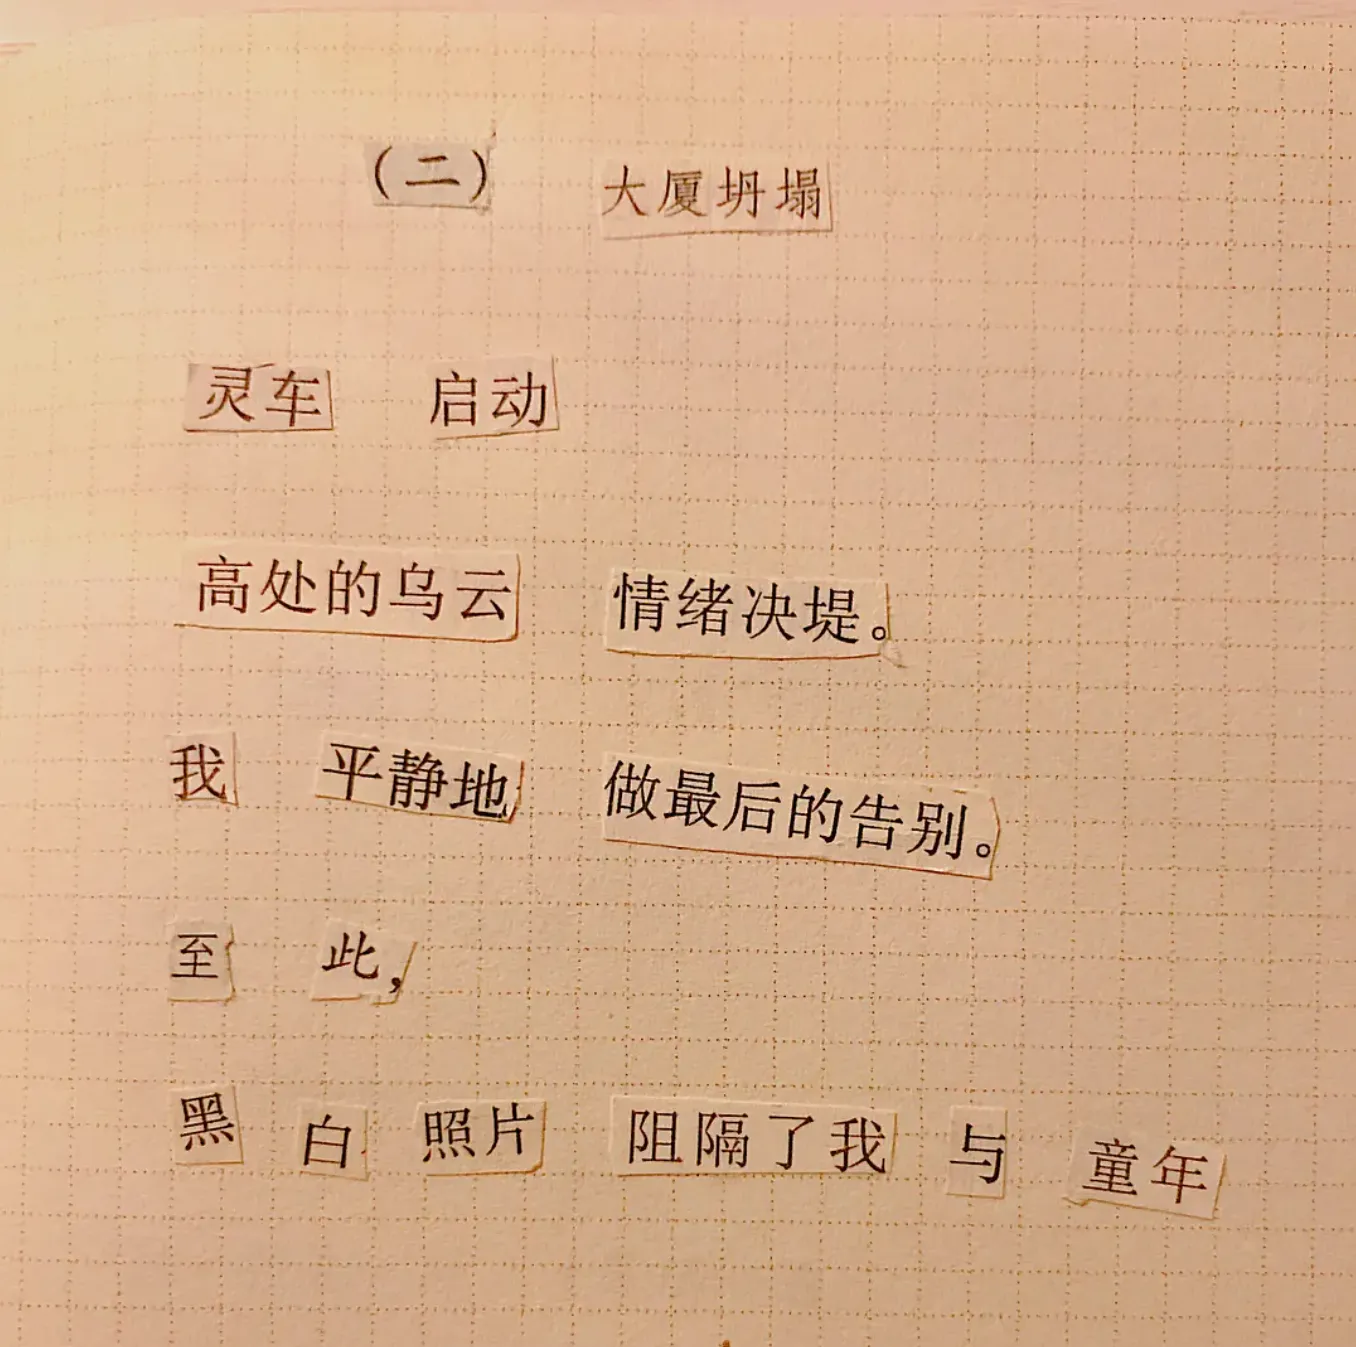 （二） 大厦坍塌
灵车 启动
高处的乌云 情绪决堤。
我 平静地 做最后的告别。
至 此，
黑 白 照片 阻隔了我 与 童年